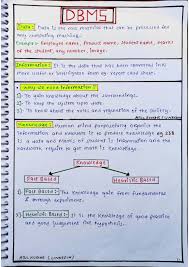 DBMS
Data: Data is the raw material that can be processed for
any computing machine.
Example :- Employee name, Product name, Student name, marks
of the student, any number, image.
Information: It is the data that has been converted into
more useful or intelligent form eg. report card sheet.
Why we need Information:
1) To gain knowledge about the surroundings.
2) To keep the system upto date.
3) To know about the rules and regulation of the society.
Knowledge:
information and amount is to produce knowledge eg
is a data and marks of student is information and the
hardwork require to get mark is knowledge.
Knowledge
Fact Based
Heuristic Based
1) Fact Based: The knowledge gain from fundamentals
& through experiment.
2) Heuristic Based: It is the knowledge of good practice
and good judgement like hypothesis.